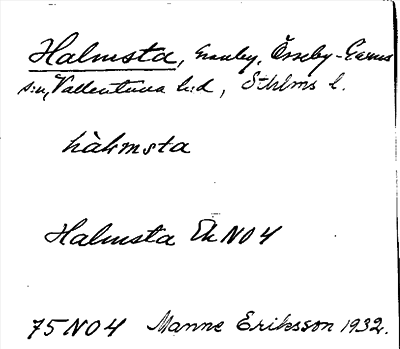 Halmsta, Granby, Össeby-Garns
s:n, Vallentuna h:d, Sthlms l.
hàlmsta
Halmsta Ek NO4
75 NO4 Manne Eriksson 1932.